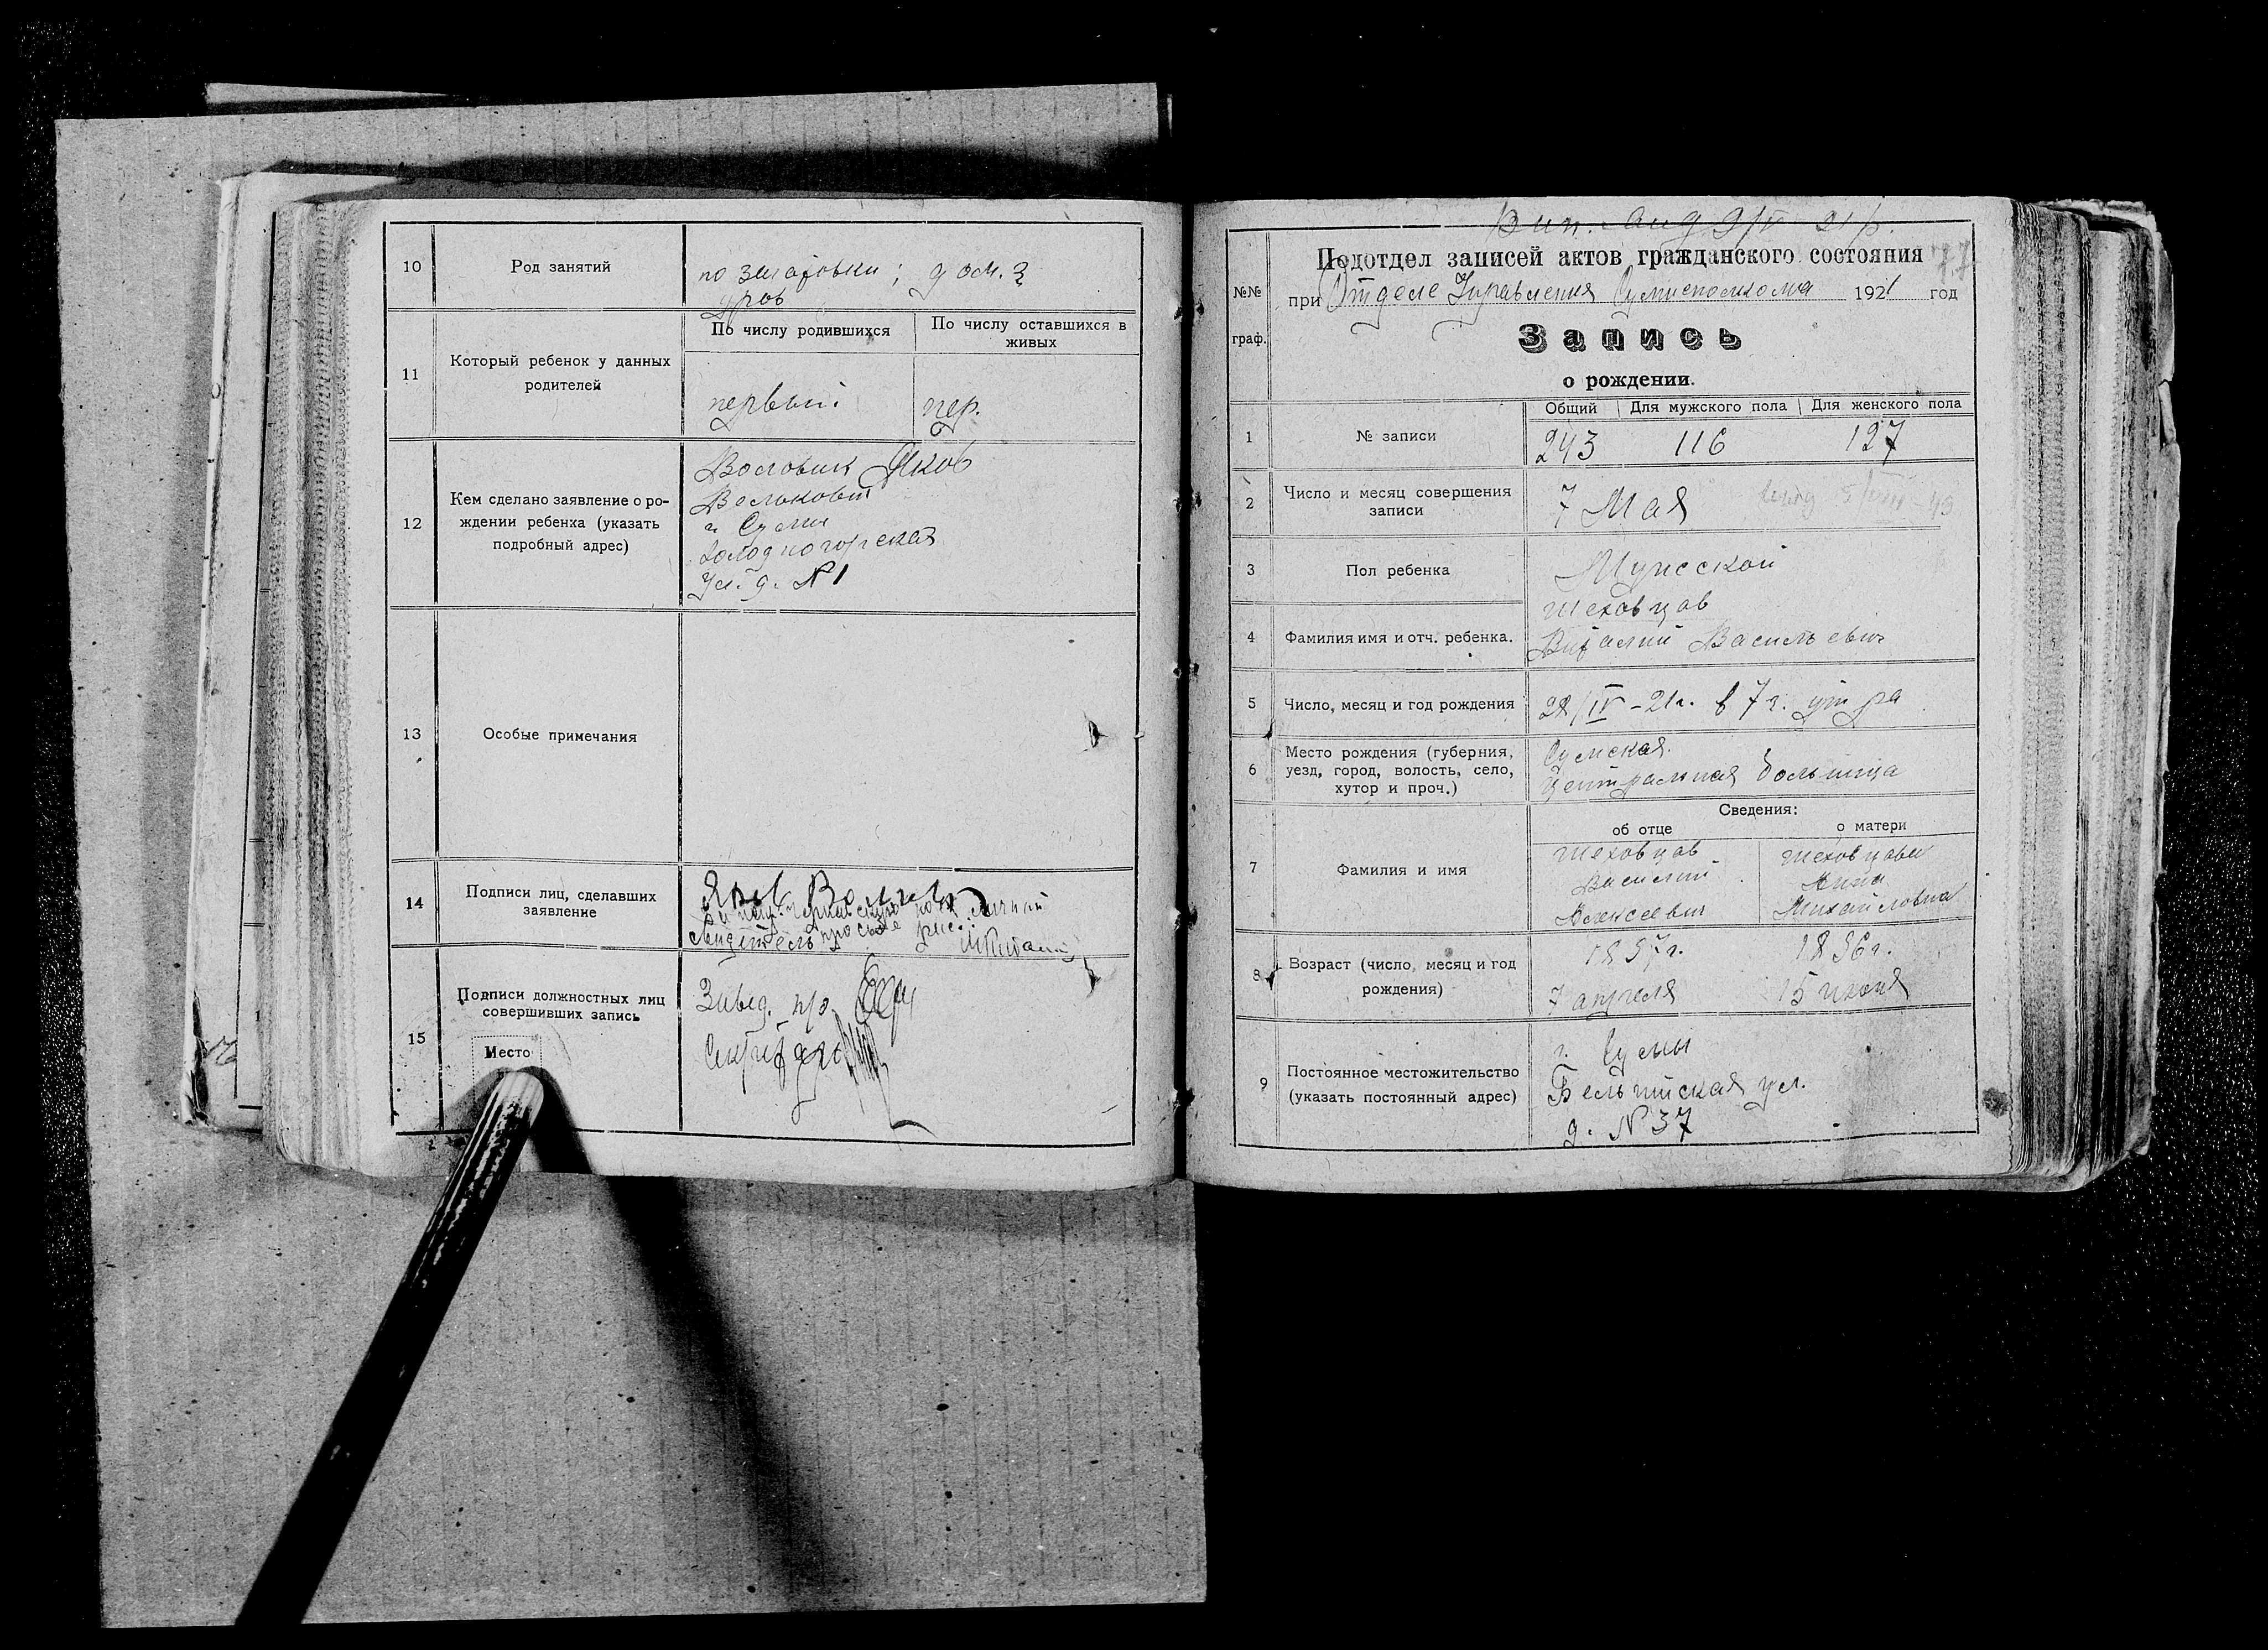 10
Род занятий
по заготовки ; дом. з
дров
11
Который ребенок у данных
родителей
По числу родившихся
По числу оставшихся в
живых
первый
пер.
12
Кем сделано заявление о ро-
ждении ребенка (указать
подробный адрес)
Воловик Яков
г. Сумы
Холодногорская
ул. д. №1
13
Особые примечания
14
Подписи лиц, сделавших
заявление
Яков
свидетельствую
15
Подписи должностных лиц
совершивших запись
Место
Завед. п/о
Секретарь
Вып. 9/V 21 р.
77
№№
граф.
Подотдел записей актов гражданского состояния
при Отделе Управления Сумисполкома 1921 год
Запись
о рождении.
Общий Для мужского пола Для женского пола
1
№ записи
243 116 127
2
Число и месяц совершения
записи
7 Мая
3
Пол ребенка
Мужской
4
Фамилия имя и отч. ребенка.
Шеховцов
Виталий Васильевич
5
Число, месяц и год рождения
28/IV-21г. в 7 ч. утра
6
Место рождения (губерния,
уезд, город, волость, село,
хутор и проч.)
Сумская
Центральная больница
Сведения:
об отце
о матери
7
Фамилия и имя
Шеховцов
Василий
Алексеевич
Шеховцовы
Анны
Михайловна
8
Возраст (число, месяц и год
рождения)
1897г.
7 апреля
1896г.
15 июня
9
Постоянное местожительство
(указать постоянный адрес)
г. Сумы
Бельгийская ул.
д. №37